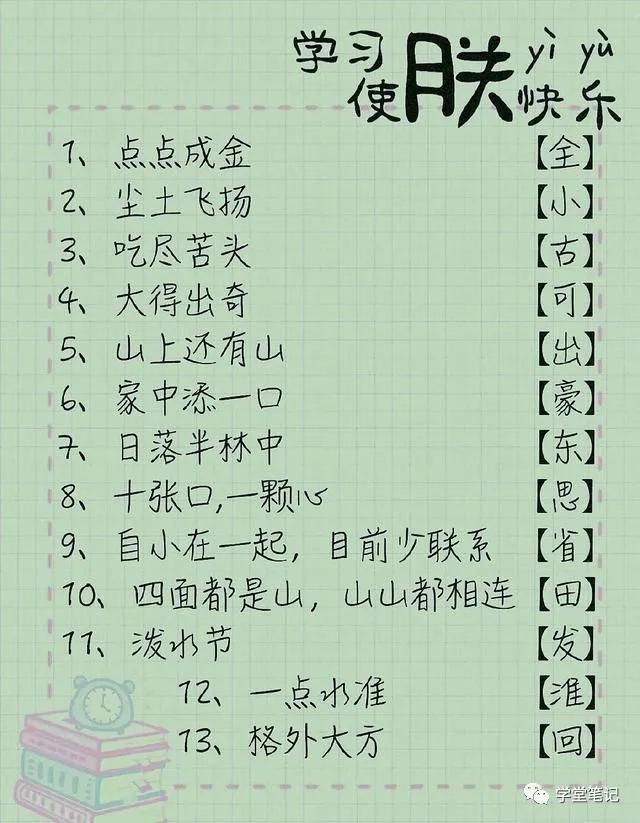 学习 yì yù
使朕快乐
1、点点成金 【全】
2、尘土飞扬 【小】
3、吃尽苦头 【古】
4、大得出奇 【可】
5、山上还有山 【出】
6、家中添一口 【豪】
7、日落半林中 【东】
8、十张口,一颗心 【思】
9、自小在一起，目前少联系 【省】
10、四面都是山，山山都相连 【田】
11、泼水节 【发】
12、一点水准 【淮】
13、格外大方 【回】
学堂笔记